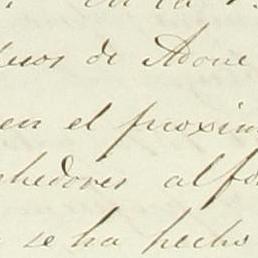 en la
de Adone
en el proxim
hedores alfo
se ha hecho